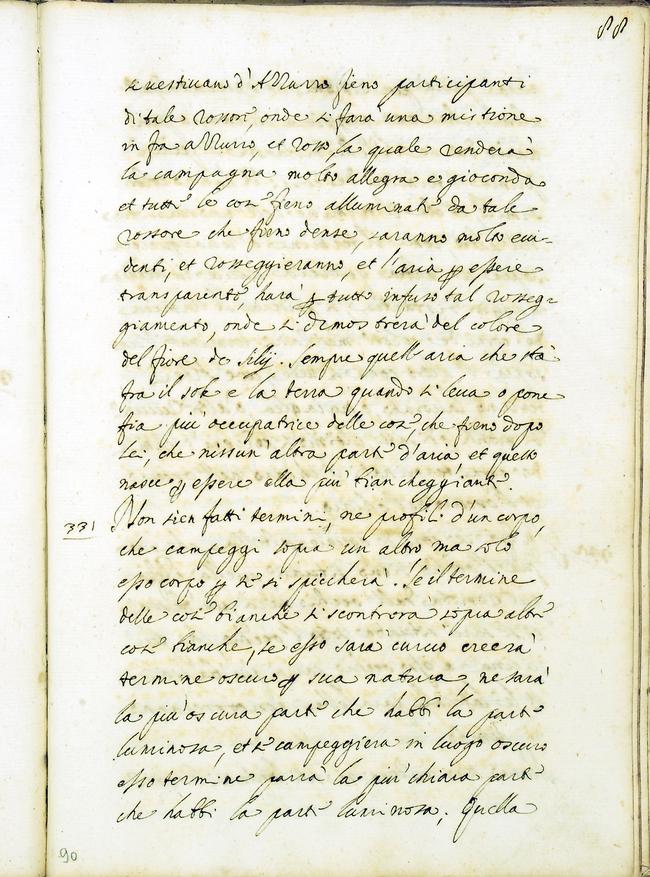 88
si uestiuano d'Azzurro fieno participanti
di tale rossore, onde si farà una mistione
in fra azzurro, et rosso, la quale renderà
la campagna molto allegra e gioconda
et tutte le cose fieno alluminate da tale
rossore che fieno dense, saranno molto eui-
denti, et rosseggieranno, et l'aria ꝑ essere
transparente harà ꝑ tutto infuso tal rosseg-
giamento, onde si dimostrerà del colore
del fiore de Lilij. Sempre quell'aria che stà
fra il sole e la terra quando si leua o pone
fia più occupatrice delle cose, che fieno dopo
lei, che nissun'altra parte d'aria, et questo
nasce ꝑ essere ella più biancheggiante.
331 Non sien fatti termini, ne profili d'un corpo,
che campeggi sopra un altro, ma solo
esso corpo ꝑ se si spiccherà. Se il termine
delle cose bianche si scontrerà sopra altre
cose bianche, se esso sarà curuo creerà
termine oscuro ꝑ sua natura, ne sarà
la più oscura parte che habbi la parte
luminosa, et se campeggierà in luogo oscuro
esso termine parrà la più chiara parte
che habbi la parte luminosa. Quella
90